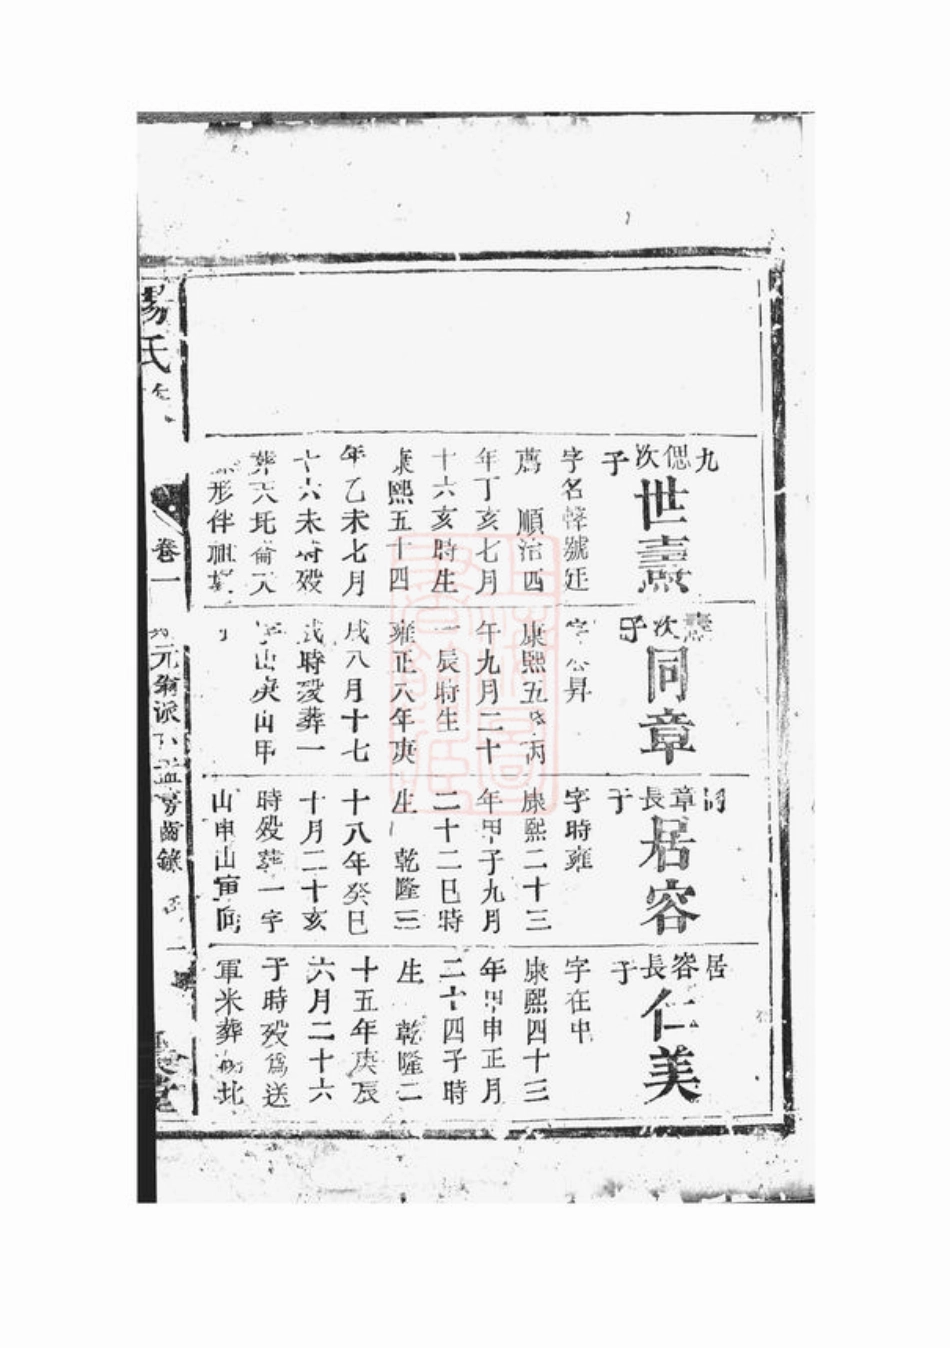 九偲次子
世燾
字名聲號廷
薦 順治四
年丁亥七月
十六亥時生
康熙五十四
年乙未七月
十六未時歿
葬 坵侖 
形伴祖
燾次子
同章
字公昇
康熙五年丙
午九月二十
一辰時生
雍正八年庚
戌八月十七
戌時歿葬一
字山庚山甲
同章長子
居容
字時雍
康熙二十三
年甲子九月
二十二巳時
生 乾隆三
十八年癸巳
十月二十亥
時歿葬一字
山申山寅向
居容長子
仁美
字在中
康熙四十三
年甲申正月
二十四子時
生 乾隆二
十五年庚辰
六月二十六
子時歿為送
軍米葬 北
楊氏
卷一
元翁派 房齒錄
一
堂